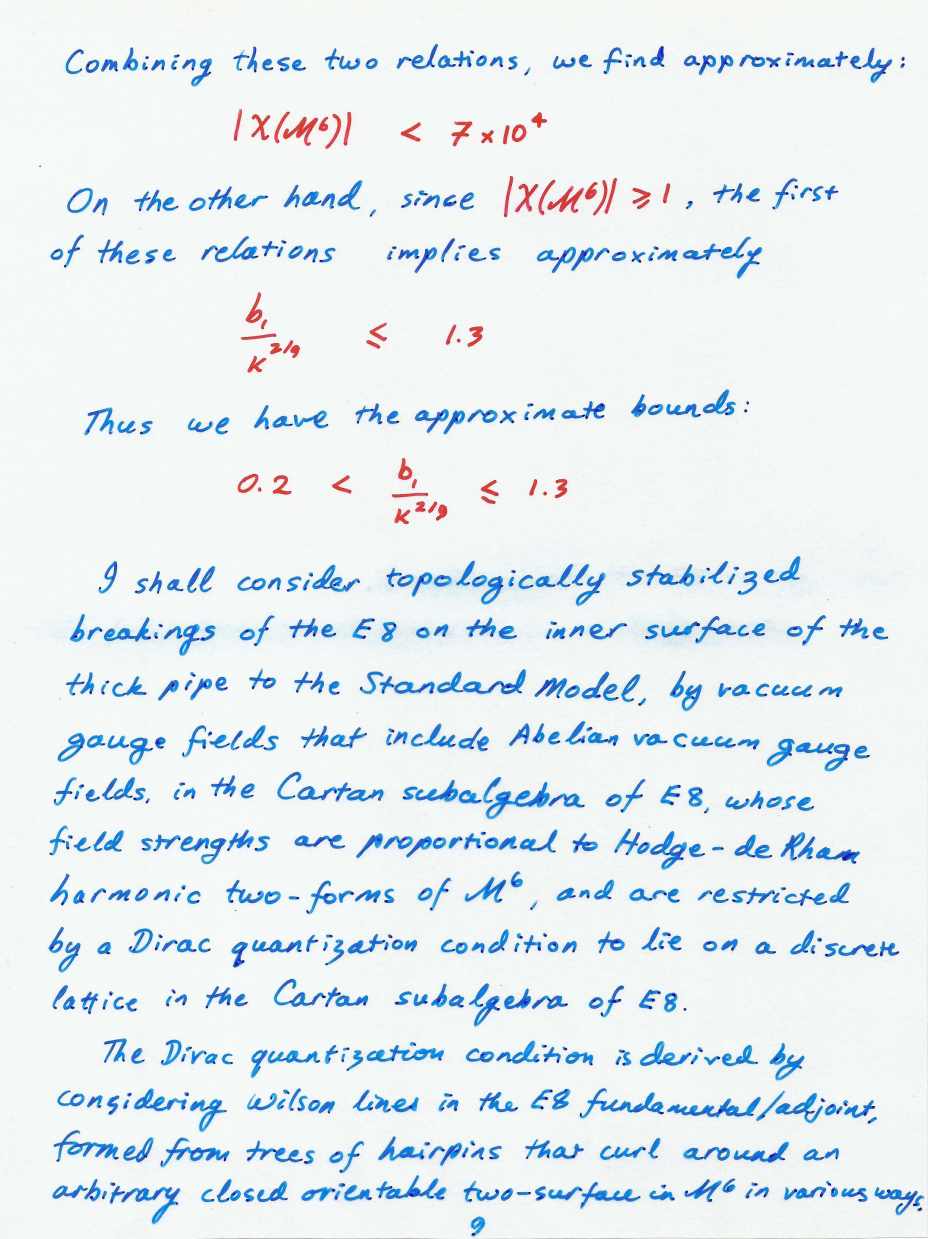 Combining these two relations, we find approximately:
|χ(M⁶)| < 7 × 10⁴
On the other hand, since |χ(M⁶)| ⩾ 1, the first
of these relations implies approximately
b₁/κ^{2/9} ≤ 1.3
Thus we have the approximate bounds:
0.2 < b₁/κ^{2/9} ≤ 1.3
I shall consider topologically stabilized
breakings of the E8 on the inner surface of the
thick pipe to the Standard Model, by vacuum
gauge fields that include Abelian vacuum gauge
fields, in the Cartan subalgebra of E8, whose
field strengths are proportional to Hodge-de Rham
harmonic two-forms of M⁶, and are restricted
by a Dirac quantization condition to lie on a discrete
lattice in the Cartan subalgebra of E8.
The Dirac quantization condition is derived by
considering Wilson lines in the E8 fundamental/adjoint,
formed from trees of hairpins that curl around an
arbitrary closed orientable two-surface in M⁶ in various ways.
9